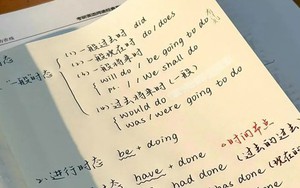 (1)一般过去时 did
(2)一般现在时 do/does
(3)一般将来时
will do / be going to do
I / We shall do
一般时态
(4)过去将来时(一般)
would do
was/were going to do
be + doing
2.进行时态
时间节点
have + done
had done (过去的过去
done